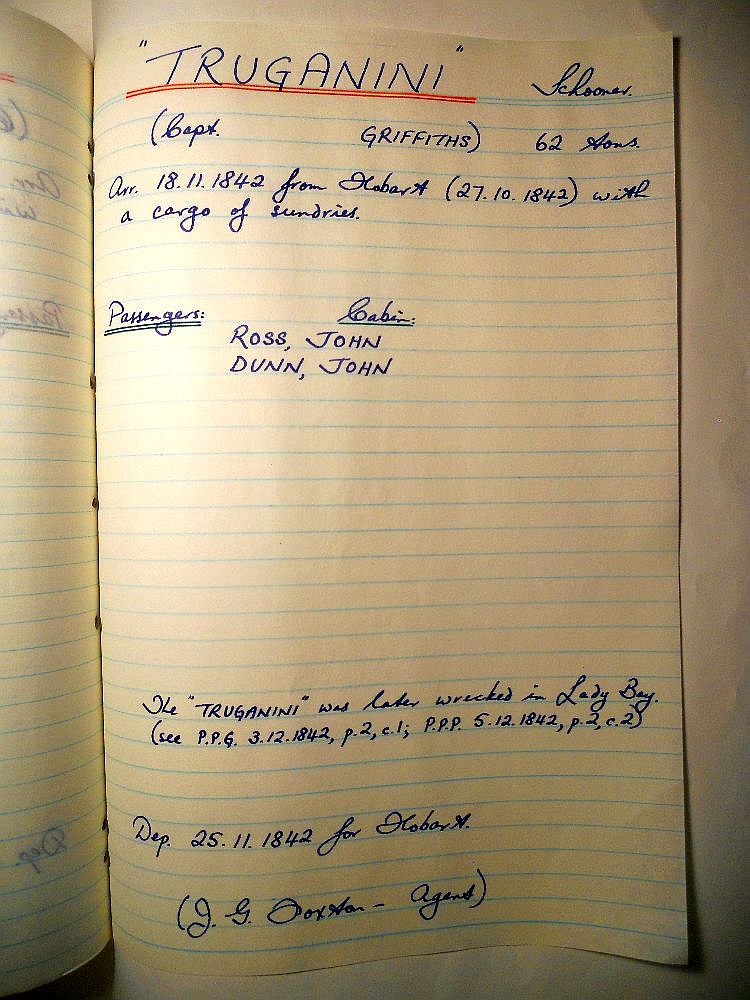 "TRUGANINI" Schooner.
(Capt. GRIFFITHS) 62 tons.
Arr. 18.11.1842 from Hobart (27.10.1842) with
a cargo of sundries.
Passengers: Cabin:
ROSS, JOHN
DUNN, JOHN
The "TRUGANINI" was later wrecked in Lady Bay.
(see P.P.G. 3.12.1842, p.2, c.1; P.P.P. 5.12.1842, p.2, c.2)
Dep. 25.11.1842 for Hobart.
(J. G. Foxton - Agent)
Dep.